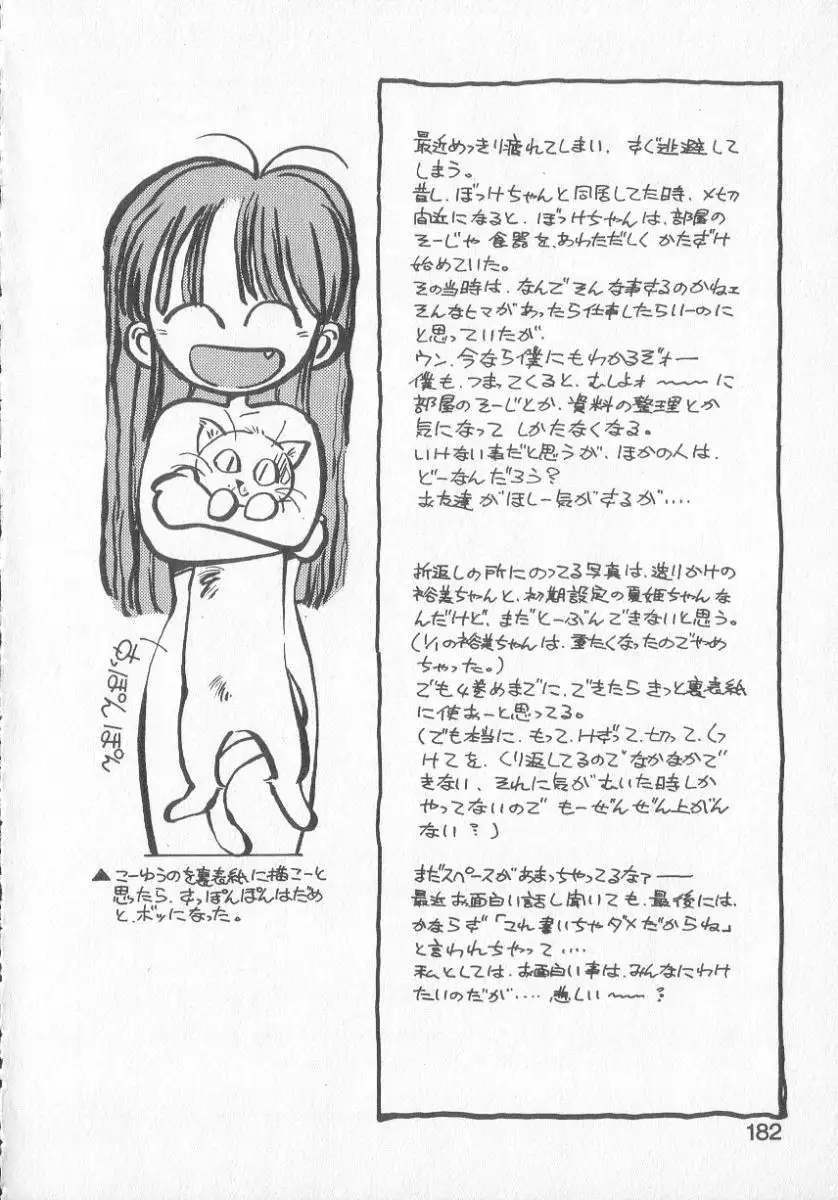 最近めっきり疲れてしまい、すぐ逃避して
しまう。
昔し、ぼっけちゃんと同居してた時、〆切
間近になると、ぼっけちゃんは、部屋の
そーじや 食器を、あわただしく かたずけ
始めていた。
その当時は、なんでそんな事するのかねェ
そんなヒマがあったら仕事したらいーのに
と思っていたが、
ウン、今なら僕にもわかるぞォー
僕も、つまってくると、むしょォ〜〜〜に
部屋のそーじとか、資料の整理とか
気になって しかたなくなる。
いけない事だと思うが、ほかの人は、
どーなんだろう？
お友達がほしー気がするが‥‥
折返しの所にのってる写真は、造りかけの
裕美ちゃんと、初期設定の夏姫ちゃんな
んだけど、まだとーぶんできないと思う。
(1/1の裕美ちゃんは、重たくなったのでやめ
ちゃった。)
でも4巻めまでに、できたら きっと裏表紙
に使おーと思ってる。
(でも本当に、もって、けずって、切って、くっ
つけてを、くり返してるので なかなかで
きない、それに気がむいた時しか
やってないので もーぜんぜん上がん
ない？)
まだスペースがあまっちゃってるなァー
最近お面白い話し聞いても、最後には、
かならず「これ書いちゃダメだからね」
と言われちゃって‥‥
私としては、お面白い事は、みんなにわけ
たいのだが‥‥、悲しい〜〜？
すっぽんぽん
▲こーゆうのを裏表紙に描こーと
思ったら、すっぽんぽんはだめ
と、ボツになった。
182